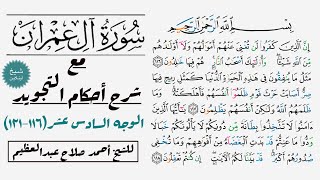 سُورَةُ آلِ عِمْرَان
مع
شرح أحكام التجويد
الوجه السادس عشر (١١٦-١٢١)
للشيخ أحمد صلاح عبدالعظيم
بِسْمِ اللَّهِ الرَّحْمَٰنِ الرَّحِيمِ
إِنَّ الَّذِينَ كَفَرُوا لَن تُغْنِيَ عَنْهُمْ أَمْوَالُهُمْ وَلَا أَوْلَادُهُم
مِّنَ اللَّهِ شَيْئًا وَأُولَٰئِكَ أَصْحَابُ النَّارِ هُمْ فِيهَا خَالِدُونَ ١١٦
مَثَلُ مَا يُنفِقُونَ فِي هَٰذِهِ الْحَيَاةِ الدُّنْيَا كَمَثَلِ رِيحٍ فِيهَا
صِرٌّ أَصَابَتْ حَرْثَ قَوْمٍ ظَلَمُوا أَنفُسَهُمْ فَأَهْلَكَتْهُ وَمَا
ظَلَمَهُمُ اللَّهُ وَلَٰكِنْ أَنفُسَهُمْ يَظْلِمُونَ ١١٧ يَا أَيُّهَا الَّذِينَ
آمَنُوا لَا تَتَّخِذُوا بِطَانَةً مِّن دُونِكُمْ لَا يَأْلُونَكُمْ خَبَالًا
وَدُّوا مَا عَنِتُّمْ قَدْ بَدَتِ الْبَغْضَاءُ مِنْ أَفْوَاهِهِمْ وَمَا تُخْفِي
صُدُورُهُمْ أَكْبَرُ قَدْ بَيَّنَّا لَكُمُ الْآيَاتِ إِن كُنتُمْ تَعْقِلُونَ ١١٨